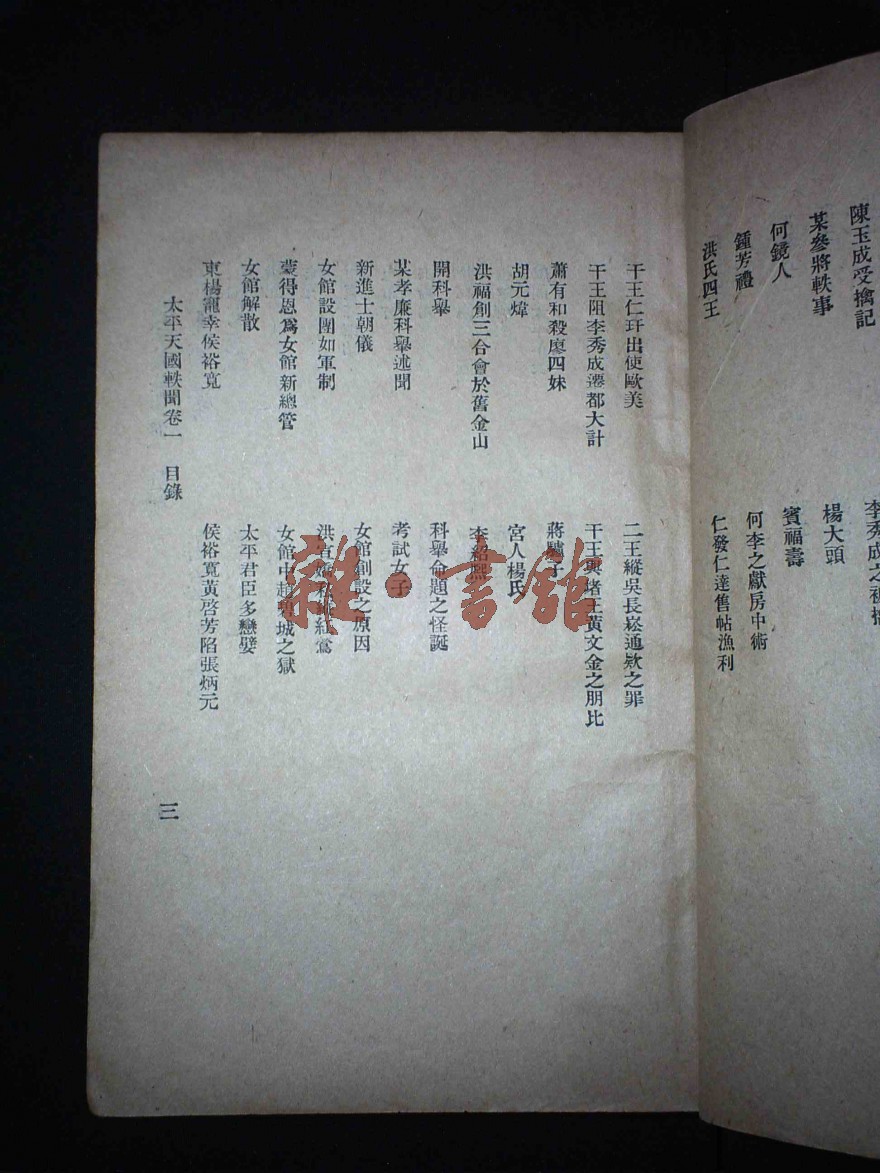 陳玉成受擒記
某參將軼事
楊大頭
何鏡人
賓福壽
鍾芳禮
何李之獻房中術
洪氏四王
仁發仁達售帖漁利
干王仁玕出使歐美
二王縱吳長崧通欵之罪
干王阻李秀成遷都大計
干王與堵王黃文金之朋比
蕭有和殺廖四妹
蔣驢子
胡元煒
宮人楊氏
洪福創三合會於舊金山
李紹熙
開科舉
科舉命題之怪誕
某孝廉科舉述聞
考試女子
新進士朝儀
女館創設之原因
女館設團如軍制
洪宣嬌
蒙得恩爲女館新總管
女館中趙碧城之獄
女館解散
太平君臣多戀嬖
東楊寵幸侯裕寬
侯裕寬黃啓芳陷張炳元
太平天國軼聞卷一 目錄
三
雜·書館